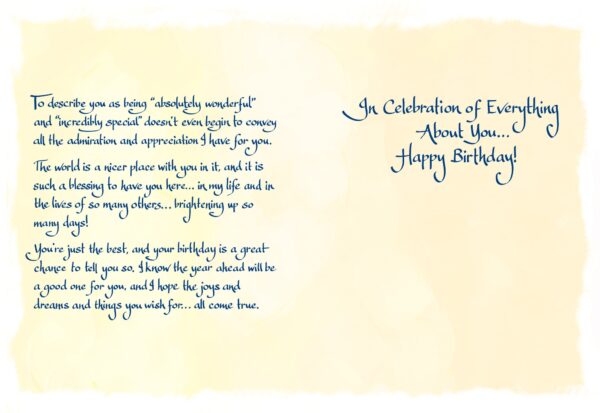 To describe you as being "absolutely wonderful"
and "incredibly special" doesn't even begin to convey
all the admiration and appreciation I have for you.
The world is a nicer place with you in it, and it is
such a blessing to have you here... in my life and in
the lives of so many others... brightening up so
many days!
You're just the best, and your birthday is a great
chance to tell you so. I know the year ahead will be
a good one for you, and I hope the joys and
dreams and things you wish for... all come true.
In Celebration of Everything
About You...
Happy Birthday!